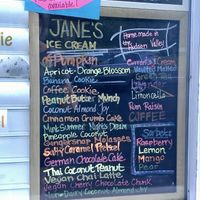 available!
JANE'S
ICE CREAM
Home made in the
Hudson Valley
Pumpkin
Apricot-Orange Blossom
Banana Cookie
Coffee Cookie
Peanut Butter Munch
Coconut Almond Joy
Cinnamon Crumb Cake
Mint Summer Night's Dream
Pineapple Coconut
Gingersnap Molasses
Salty Caramel Pretzel
German Chocolate Cake
Thai Coconut Peanut
Vegan Chai Latte
Vegan Cherry Chocolate Chunk
Non-Dairy Coconut Almond
Limoncello
Rum Raisin
COFFEE
Sorbets
Raspberry
Lemon
Mango
Pear